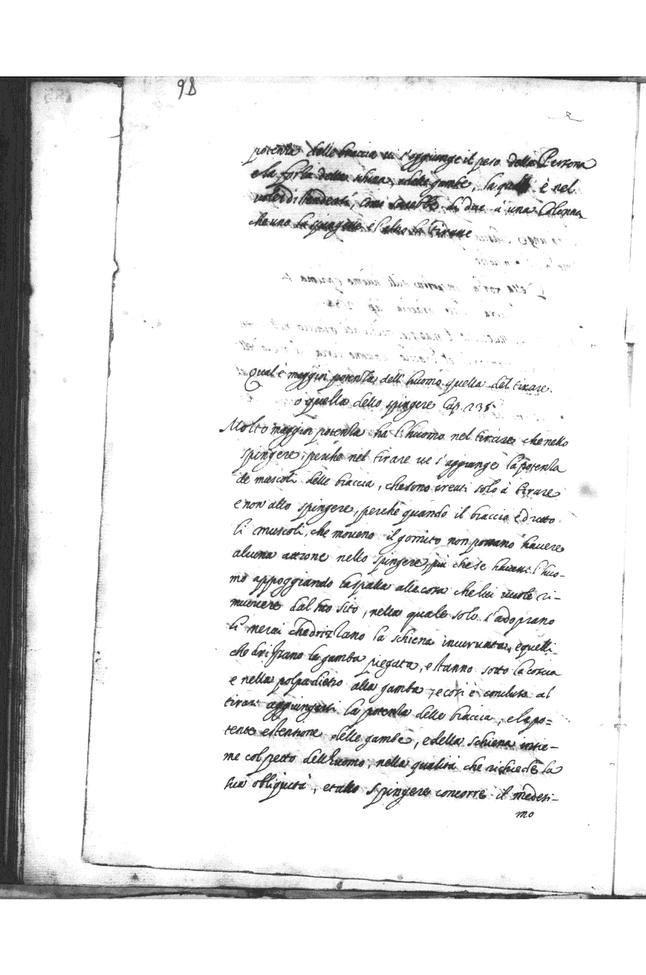 98
potenza delle braccia ui s'aggiunge il peso della Persona
e la forza della schiena, e delle gambe, la quale è nel
di due à una Colonna
che uno la spingesse è l'altro la tirasse
Qual'è maggior potenza dell'huomo quella del tirare
o quella dello spingere Cap. 235.
Molto maggior potenza ha l'huomo nel tirare, che nello
spingere, perche nel tirare ue s'aggiunge la potenza
de muscoli delle braccia, che sono creati solo à tirare
e non allo spingere, perche quando il braccio è dritto
li muscoli, che moueno il gomito non possano hauere
alcuna azzione nello spingere, più che se hauesse l'huo-
mo appoggiando la spalla alla cosa che lui uuole ri-
muouere dal suo sito, nella quale solo s'adoprano
li nerui che drizzano la schiena incuruata, e quelli
che drizzano la gamba piegata, e stanno sotto la coscia
e nella polpa dietro alla gamba, e così è concluso al
tirare aggiungersi la potenza delle braccia, e la po-
tente estensione delle gambe, e della schiena insie-
me col petto dell'huomo, nella qualità che richiede la
sua obliquità, et allo spingere concorre il medesi-
mo